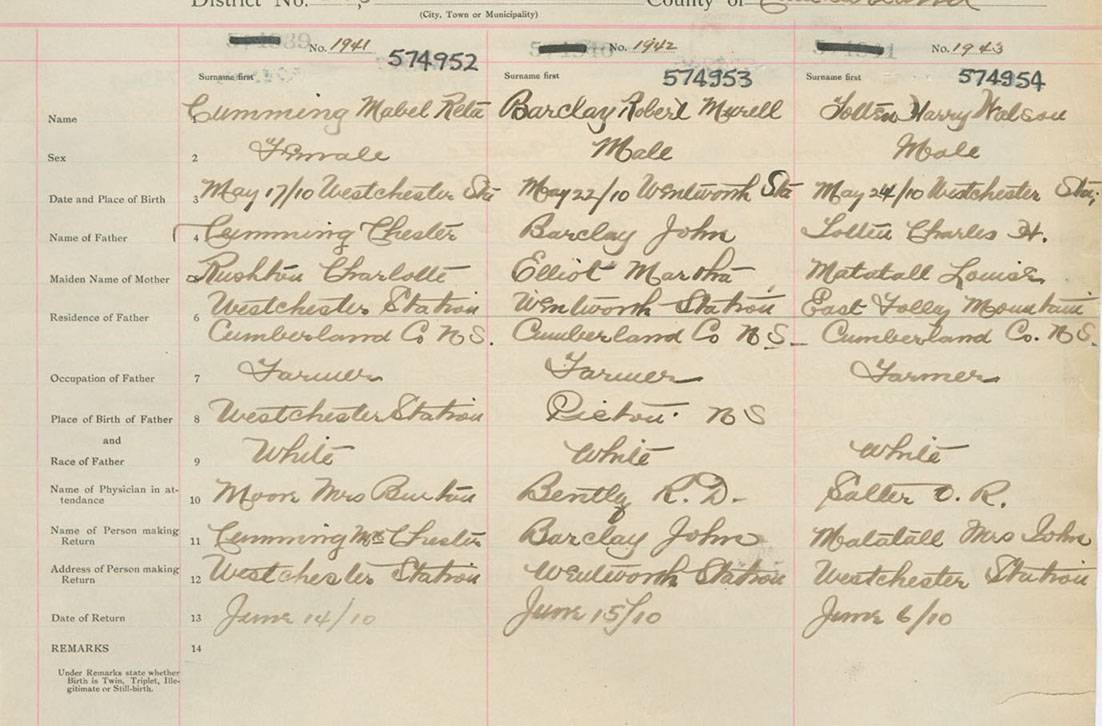 District No.
County of
(City, Town or Municipality)
No. 1941 No. 1942 No. 1943
574952 574953 574954
Surname first Surname first Surname first
Name 1 Cumming Mabel Reta Barclay Robert Murell Totten Harry Watson
Sex 2 Female Male Male
Date and Place of Birth 3 May 17/10 Westchester Sta May 22/10 Wentworth Sta May 24/10 Westchester Sta,
Name of Father 4 Cumming Chester Barclay John Totten Charles H.
Maiden Name of Mother 5 Rushton Charlotte Elliot Martha Matatall Louise
Residence of Father 6 Westchester Station Wentworth Station East Folley Mountain
Cumberland Co N S. Cumberland Co N S Cumberland Co. N S.
Occupation of Father 7 Farmer Farmer Farmer
Place of Birth of Father 8 Westchester Station Pictou N S
and
Race of Father 9 White White White
Name of Physician in at-
tendance 10 Moore Mrs Burton Bently R. D. Salter O. R.
Name of Person making
Return 11 Cumming Mrs Chester Barclay John Matatall Mrs John
Address of Person making
Return 12 Westchester Station Wentworth Station Westchester Station
Date of Return 13 June 14/10 June 15/10 June 6/10
REMARKS 14
Under Remarks state whether
Birth is Twin, Triplet, Ille-
gitimate or Still-birth.